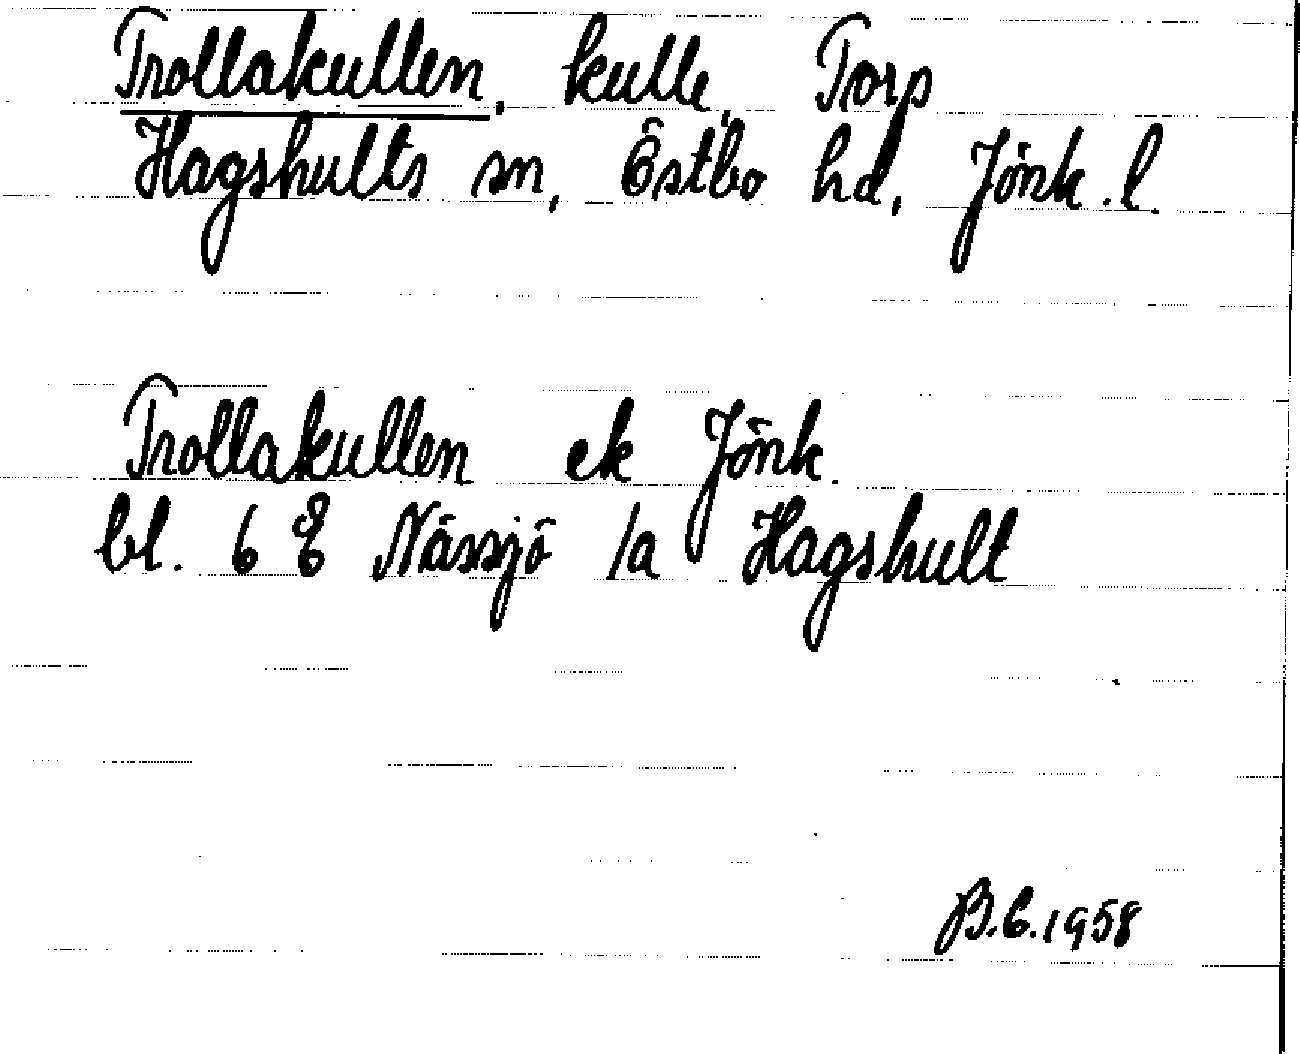 Trollakullen, kulle, Torp
Hagshults sn, Östbo hd, Jönk.l.
Trollakullen ek Jönk.
bl. 6 E Nässjö 1a Hagshult
B.C.1958